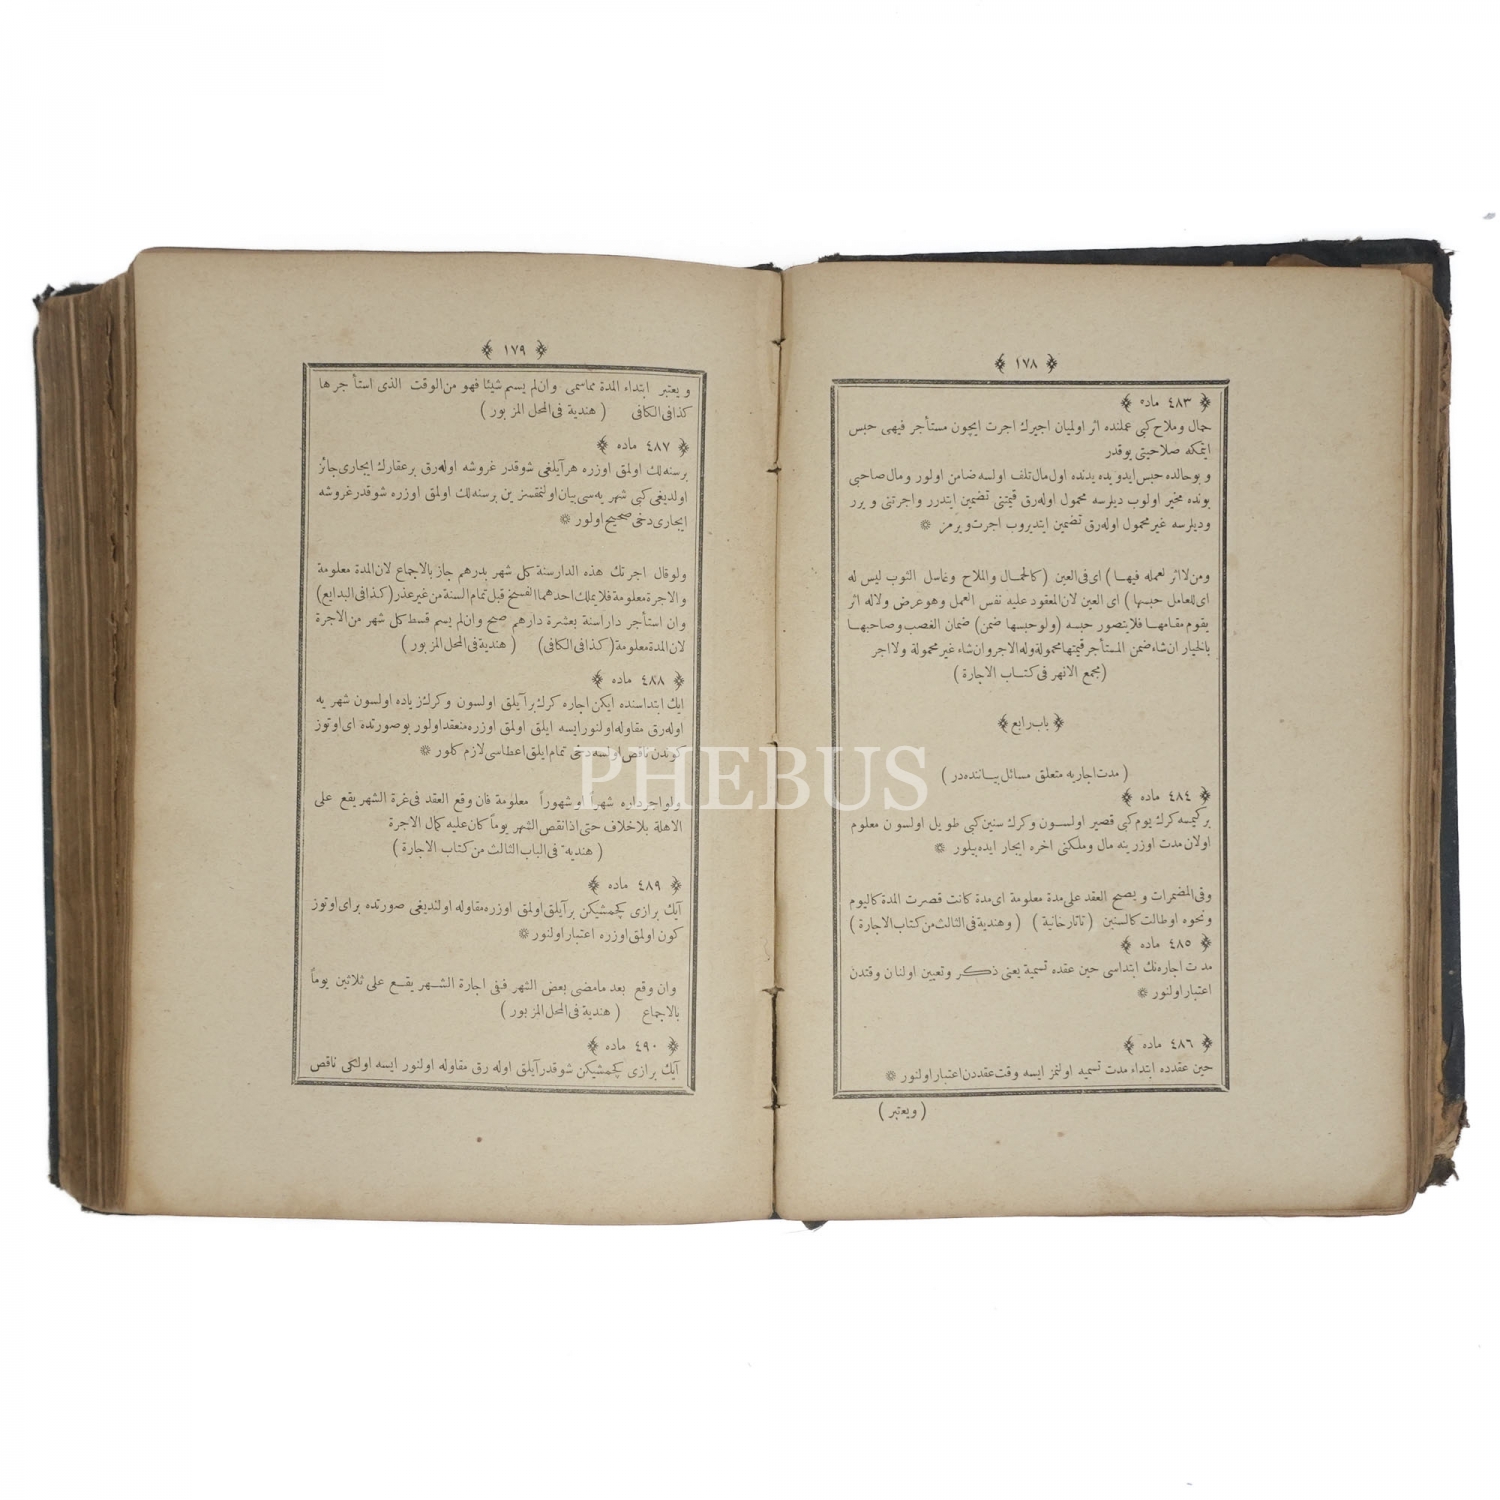 ﴿ ١٧٨ ﴾
﴿ ٤٨٣ ماده ﴾
حمال وملاح كبى عملنده اثر اولميان اجيرك اجرت ايچون مستأجر فيهى حبس
ايتمكه صلاحيتى يوقدر
و بوحالده حبس ايدوبده يدنده اول مال تلف اولسه ضامن اولور ومال صاحبى
بونده مخير اولوب ديلرسه محمول اوله رق قيمتنى تضمين ايتدرر واجرتنى ويرر
وديلرسه غير محمول اوله رق تضمين ايتديروب اجرت ويرمز ❊
ومن لا اثر لعمله فيها ) اى فى العين ( كالحمال والملاح وغاسل الثوب ليس له
اى للعامل حبسها ) اى العين لان المعقود عليه نفس العمل وهو عرض ولا له اثر
يقوم مقامها فلا يتصور حبسه ( ولو حبسها ضمن ) ضمان الغصب وصاحبها
بالخيار ان شاء ضمن المستأجر قيمتها محمولة وله الاجر وان شاء غير محمولة ولا اجر
( مجمع الانهر فى كتاب الاجارة )
﴿ باب رابع ﴾
( مدت اجاريه متعلق مسائل بيانندهدر )
﴿ ٤٨٤ ماده ﴾
بر كيمسه كرك يوم كبى قصير اولسون وكرك سنين كبى طويل اولسون معلوم
اولان مدت اوزرينه مال وملكنى اخره ايجار ايده بيلور ❊
وفى المضمرات و يصح العقد على مدة معلومة اى مدة كانت قصرت المدة كاليوم
ونحوه او طالت كالسنين ( تاتارخانية ) ( وهندية فى الثالث من كتاب الاجارة )
﴿ ٤٨٥ ماده ﴾
مدت اجاره نك ابتداسى حين عقده تسميه يعنى ذكر وتعيين اولنان وقتدن
اعتبار اولنور ❊
﴿ ٤٨٦ ماده ﴾
حين عقدده ابتداء مدت تسميه اولنمز ايسه وقت عقددن اعتبار اولنور ❊
( ويعتبر )
﴿ ١٧٩ ﴾
و يعتبر ابتداء المدة مما سمى وان لم يسم شيئا فهو من الوقت الذى استأجرها
كذا فى الكافى ( هندية فى المحل المزبور )
﴿ ٤٨٧ ماده ﴾
بر سنه لك اولمق اوزره هر آيلغى شو قدر غروشه اوله رق بر عقارك ايجارى جائز
اولديغى كبى شهريه سى بيان اولنمقسزين بر سنه لك اولمق اوزره شو قدر غروشه
ايجارى دخى صحيح اولور ❊
ولو قال اجرتك هذه الدار سنة كل شهر بدرهم جاز بالاجماع لان المدة معلومة
والاجرة معلومة فلا يملك احدهما الفسخ قبل تمام السنة من غير عذر ( كذا فى البدايع )
وان استأجر دارا سنة بعشرة دارهم صح وان لم يسم قسط كل شهر من الاجرة
لان المدة معلومة ( كذا فى الكافى ) ( هندية فى المحل المزبور )
﴿ ٤٨٨ ماده ﴾
ايك ابتداسنده ايكن اجاره كرك بر آيلق اولسون وكرك زياده اولسون شهريه
اوله رق مقاوله اولنور ايسه ايلق اولمق اوزره منعقد اولور بو صورتده اى اوتوز
كوندن ناقص اولسه دخى تمام ايلق اعطاسى لازم كلور ❊
ولو اجر داره شهراً او شهوراً معلومة فان وقع العقد فى غرة الشهر يقع على
الاهلة بلا خلاف حتى اذا نقص الشهر يوماً كان عليه كمال الاجرة
( هندية فى الباب الثالث من كتاب الاجارة )
﴿ ٤٨٩ ماده ﴾
آيك برازى كچمشيكن بر آيلق اولمق اوزره مقاوله اولنديغى صورتده بر اى اوتوز
كون اولمق اوزره اعتبار اولنور ❊
وان وقع بعد ما مضى بعض الشهر ففى اجارة الشهر يقع على ثلاثين يوماً
بالاجماع ( هندية فى المحل المزبور )
﴿ ٤٩٠ ماده ﴾
آيك برازى كچمشيكن شو قدر آيلق اوله رق مقاوله اولنور ايسه اولكى ناقص
PHEBUS